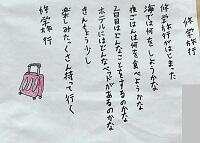 修学旅行
修学旅行がはじまった
海では何をしようかな
夜ごはんは何を食べようかな
2日目はどんなことをするのかな
ホテルにはどんなベッドがあるのかな
きんちょう少し
楽しみたくさん持って行く
修学旅行